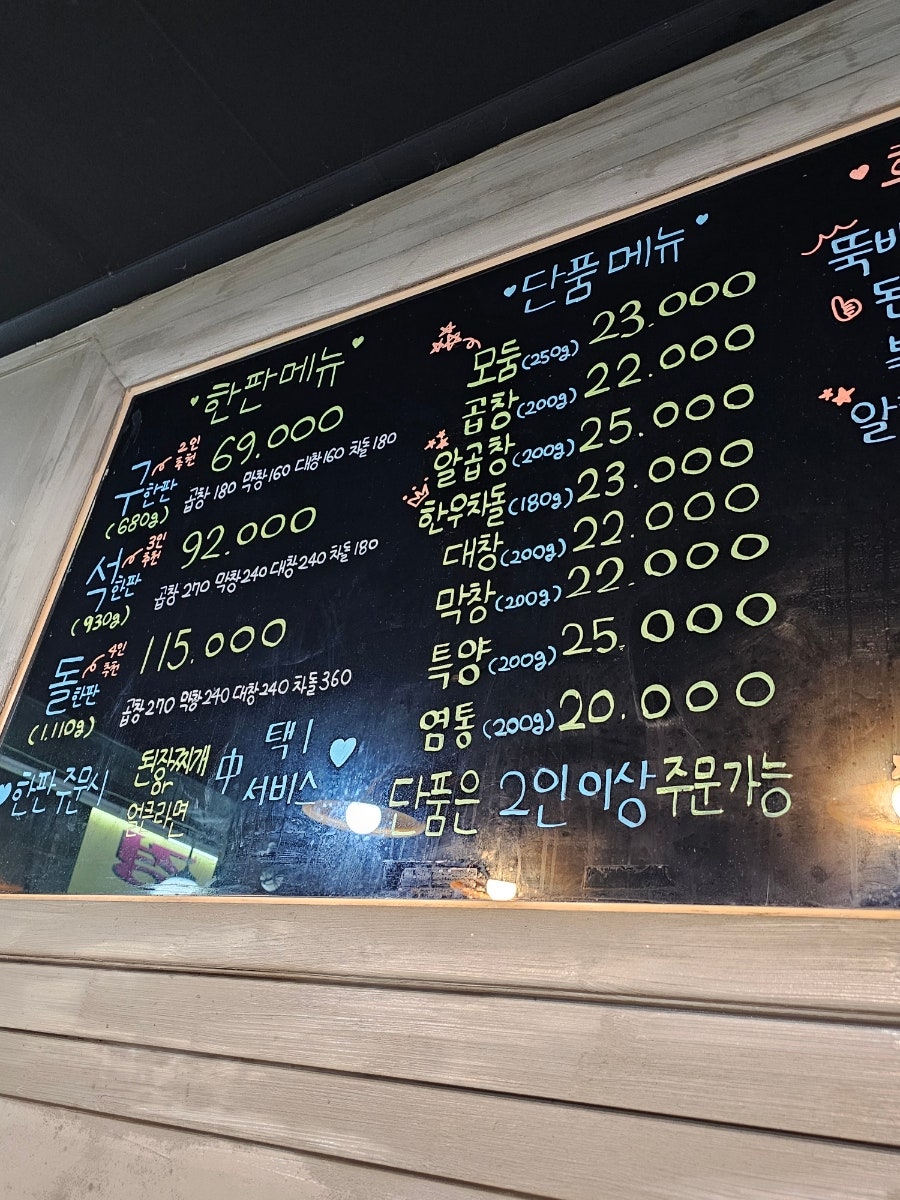 한판메뉴
구한판 2인 추천 69.000
(680g) 곱창 180 막창 160 대창 160 차돌 180
석한판 3인 추천 92.000
(930g) 곱창 270 막창 240 대창 240 차돌 180
돌한판 4인 추천 115.000
(1,110g) 곱창 270 막창 240 대창 240 차돌 360
한판 주문시 된장찌개 or 얼큰라면 中 택1 서비스
단품메뉴
모둠(250g) 23.000
곱창(200g) 22.000
알곱창(200g) 25.000
한우차돌(180g) 23.000
대창(200g) 22.000
막창(200g) 22.000
특양(200g) 25.000
염통(200g) 20.000
단품은 2인 이상 주문가능